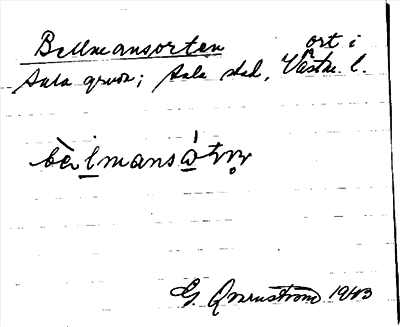 Bellmansorten ort i
Sala gruva; Sala stad, Västm. l.
bèlmansát
G. Qvarnström 1943